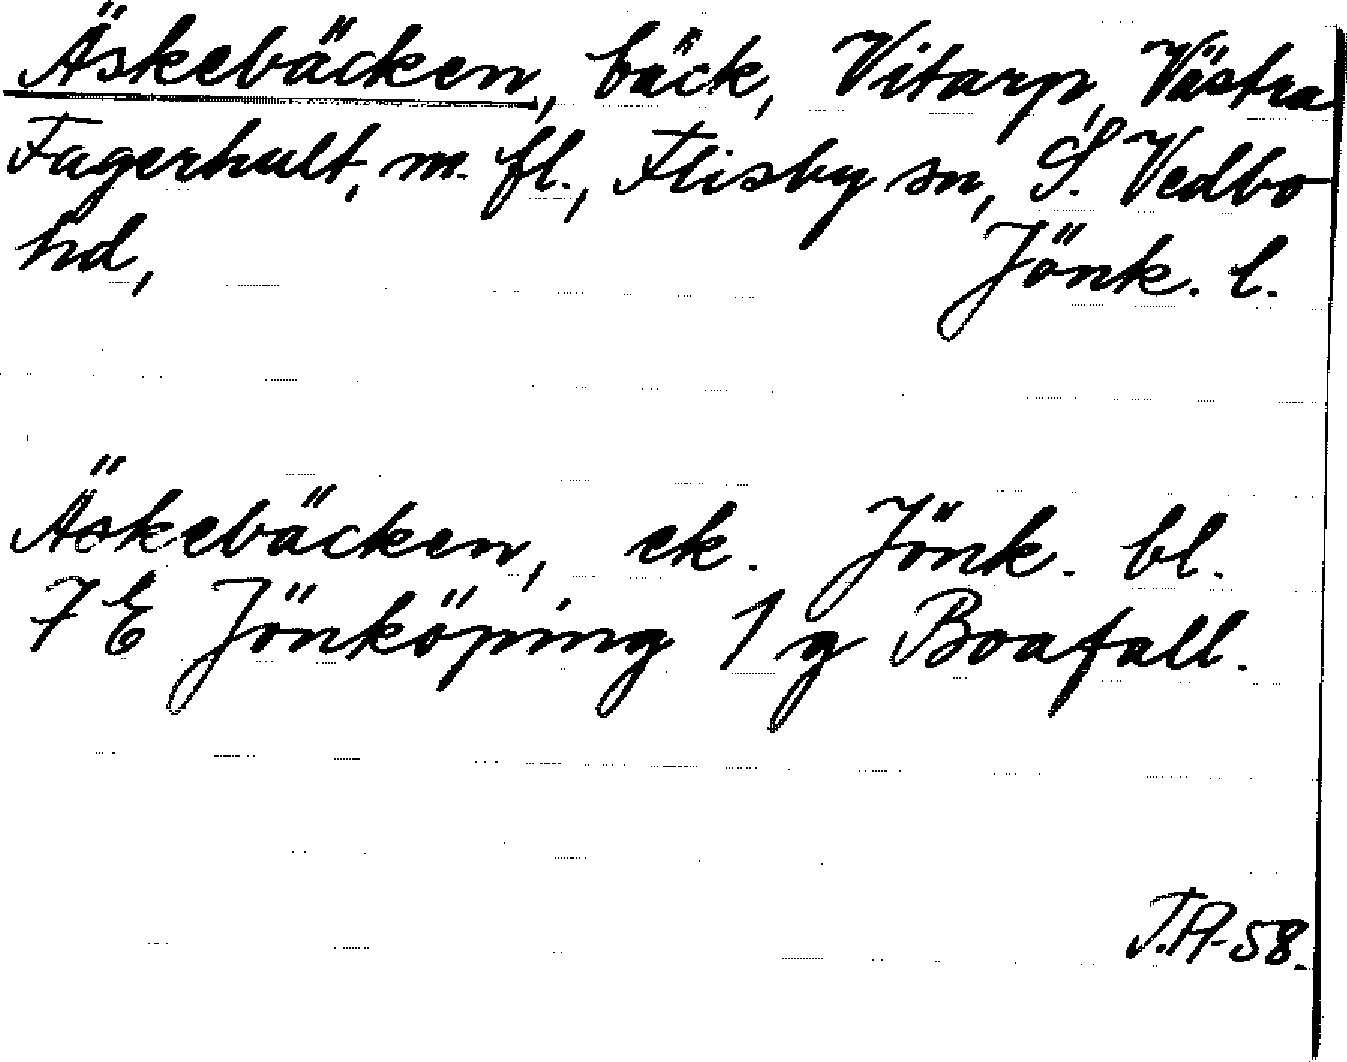 Äskebäcken, bäck, Vitarp, Västra
Fagerhult, m. fl., Flisby sn, S. Vedbo
hd, Jönk. l.
Äskebäcken, ek. Jönk. bl.
7 E Jönköping 1 g Boafall.
J.A-58.